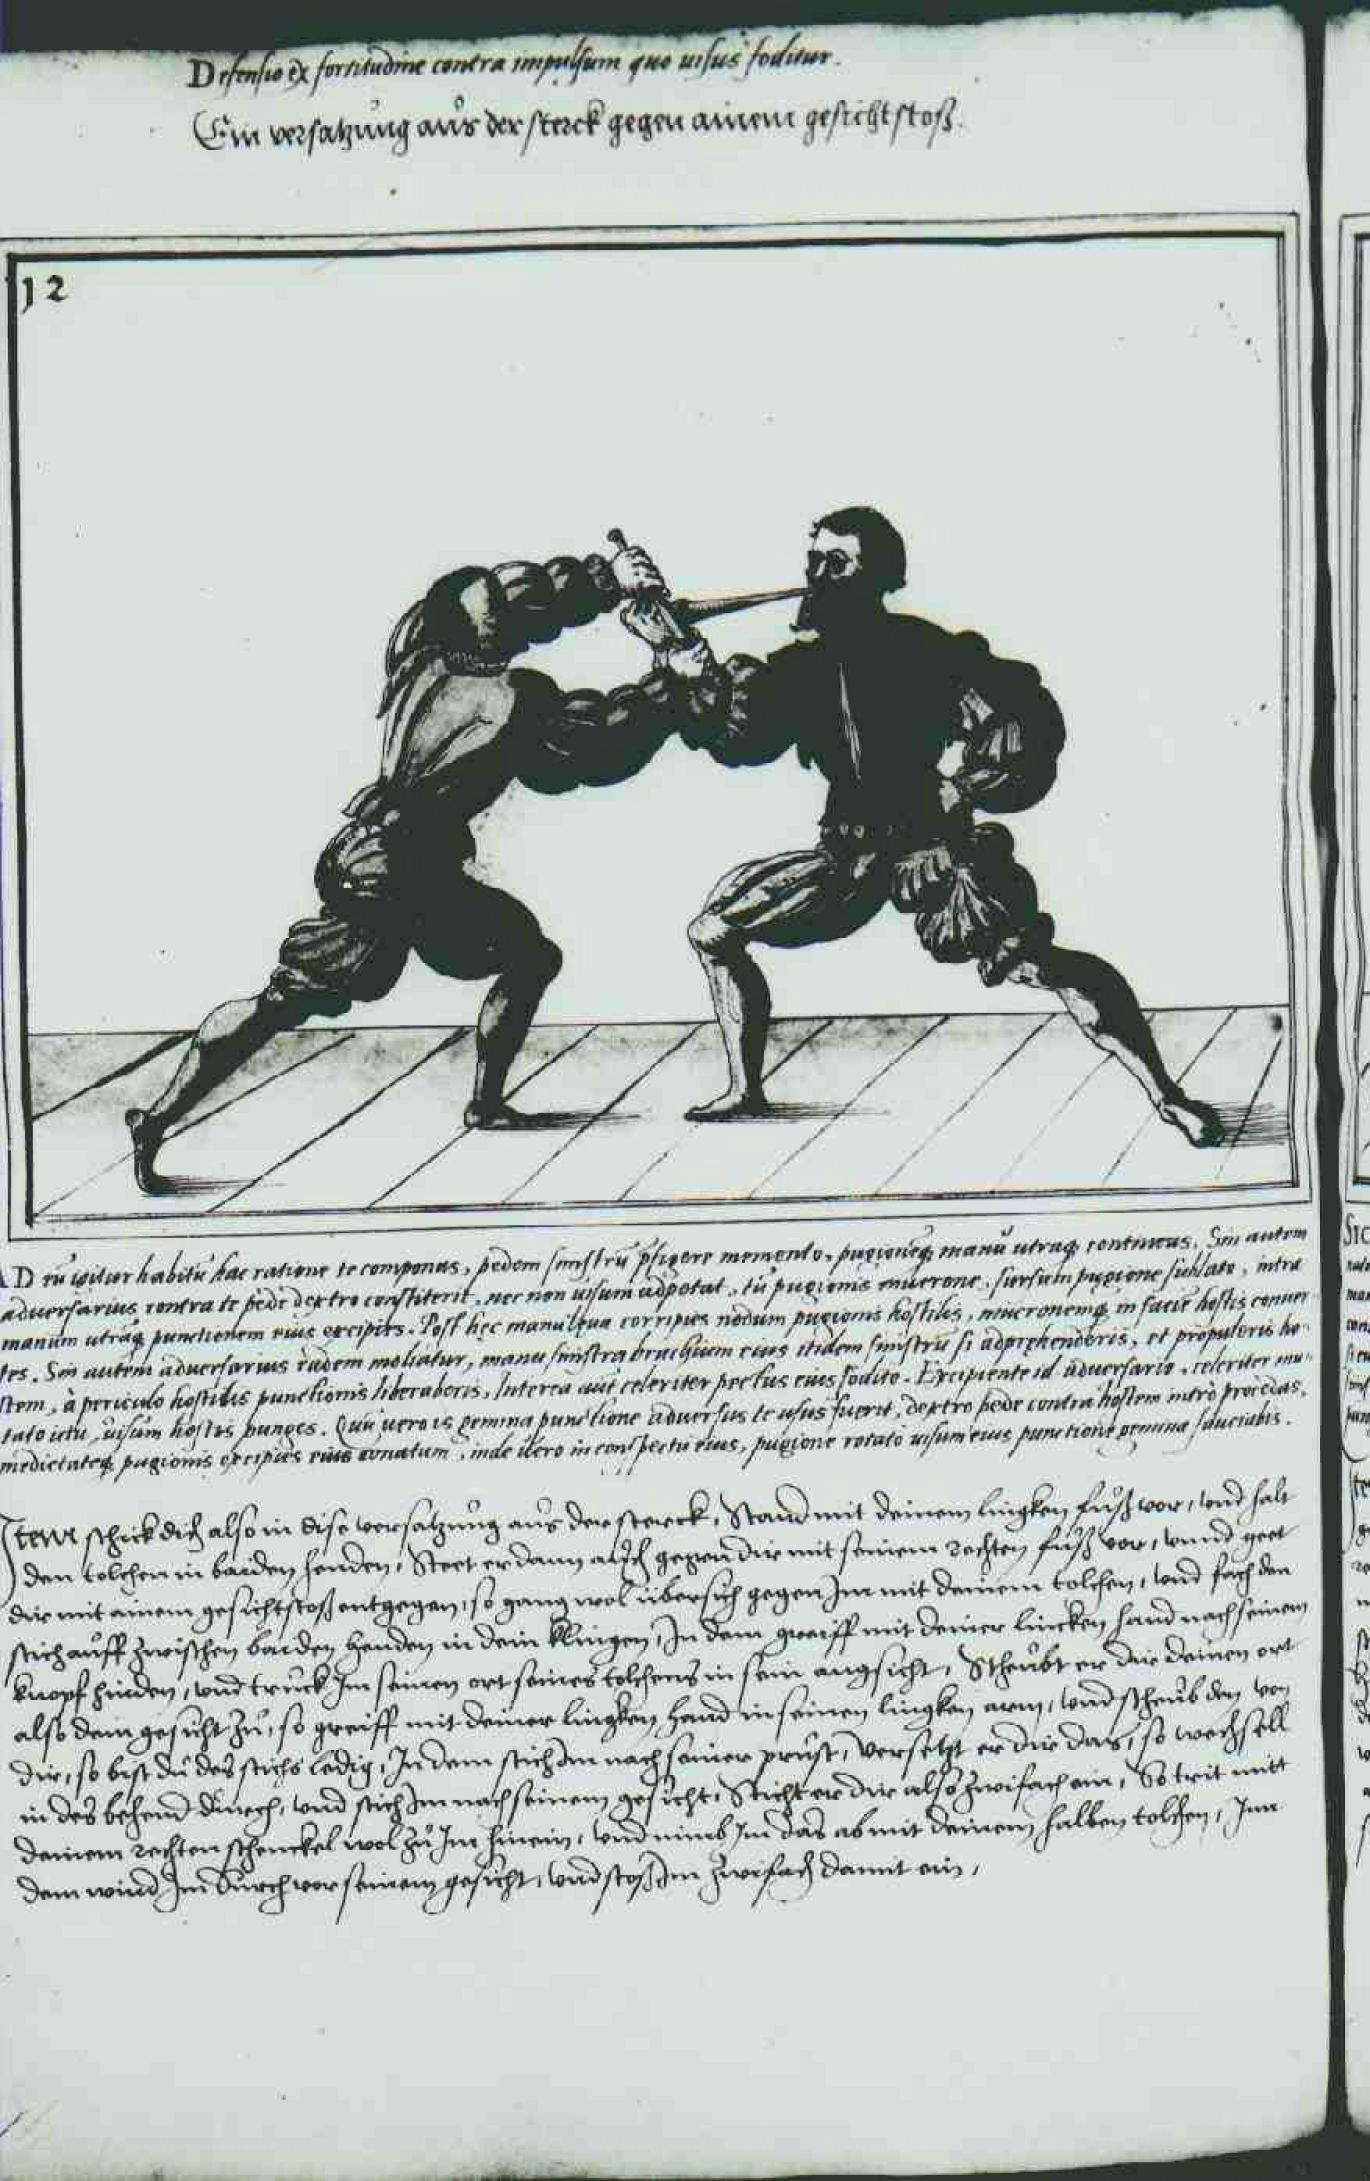 Defensio ex fortitudine contra impulsum quo uisus foditur.
Ein versatzung aus der sterck gegen ainem gesicht stoß.
12
AD eũ igitur habitũ hac ratione te componas, pedem sinistrũ p̃figere memento, pugionẽq; manũ utraq; continens. Sin autem
aduersarius contra te pede dextro constiterit, nec non uisum adpetat, tũ pugionis mucrone, sursum pugione sublato, intra
manum utramq; punctionem eius excipies. Post hęc manu lęua corripies nodum pugionis hostilis, mucronemq; in faciẽ hostis conuer
tes. Sin autem aduersarius eadem moliatur, manu sinistra brachium eius itidem sinistrũ si adprehenderis, et propuleris ho-
stem, à periculo hostilis punctionis liberaberis, Interea aũt celeriter pectus eius fodito. Excipiente id aduersario, celeriter mu-
tato ictu, uisum hostis punges. Quũ uero is gemina punctione aduersus te usus fuerit, dextro pede contra hostem intrò procedas,
medietateq; pugionis excipies eius conatum, inde uero in conspectu eius, pugione rotato uisum eius punctione gemina sauciabis.
Item schick dich also in dise versatzung aus der sterck, Stand mit deinem lingken fuͦß vor, vnd halt
den tolchen in baiden henden, Steet er dann auch gegen dir mit seinem rechten fuͦß vor, vnnd geet
dir mit ainem gesichtstoß entgegen, so gang wol übersich gegen Im mit deinem tolchen, vnd fach den
stich auff zwischen baiden henden in dein klingen, In dem greiff mit deiner lincken hand nach seinem
knopf hinden, vnd truck Im seinen ort seines tolchens in sein angsicht, Scheubt er dir deinen ort
also deim gesicht zuͦ, so greiff mit deiner lingken hand in seinen lingken arm, vnd scheub den von
dir, so bist du des stichs ledig, In dem stich Im nach seiner prust, versetzt er dir das, so wechsell
in des behend durch, vnd stich Im nach seinem gesicht, Sticht er dir also zwifach ein, So trit mitt
deinem rechten schenckel wol zuͦ Im hinein, vnd nimb Im das ab mit deinem halben tolchen, Inn
dem wind Im durch vor seinem gesicht, vnd stoß Im zwifach damit ein,